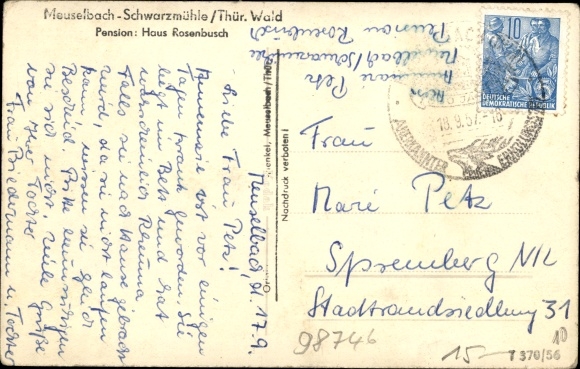 Meuselbach-Schwarzmühle/Thür. Wald
Pension: Haus Rosenbusch
Meuselbach, d. 17.9.
Liebe Frau Petz!
Annemarie ist vor einigen
Tagen krank geworden. Sie
liegt im Bett und hat
wahrscheinlich Rheuma
Falls sie nach Hause gebracht
wird, da sie nicht laufen
kann, müssen sie gleich
Bescheid. Bitte beunruhigen
sie sich nicht. Viele Grüße
von Ihrer Tochter
Frau Biedermann u. Tochter
Petz
Meuselbach/Schwarzmühle
Pension Rosenbusch
Meuselbach/Thür.
Nachdruck verboten!
10
DEUTSCHE
DEMOKRATISCHE REPUBLIK
18.9.57.-16
ANERKANNTER
ERHOLUNGSORT
Frau
Marie Petz
Spremberg NL
Stadtrandsiedlung 31
98746
10
15.-
T 370/56